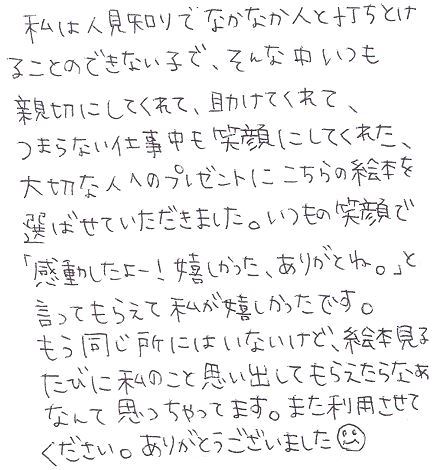 私は人見知りでなかなか人と打ちとけ
ることのできない子で、そんな中いつも
親切にしてくれて、助けてくれて、
つまらない仕事中も笑顔にしてくれた、
大切な人へのプレゼントにこちらの絵本を
選ばせていただきました。いつもの笑顔で
「感動したよー！嬉しかった、ありがとね。」と
言ってもらえて私が嬉しかったです。
もう同じ所にはいないけど、絵本見る
たびに私のこと思い出してもらえたらなぁ
なんて思っちゃってます。また利用させて
ください。ありがとうございました☺